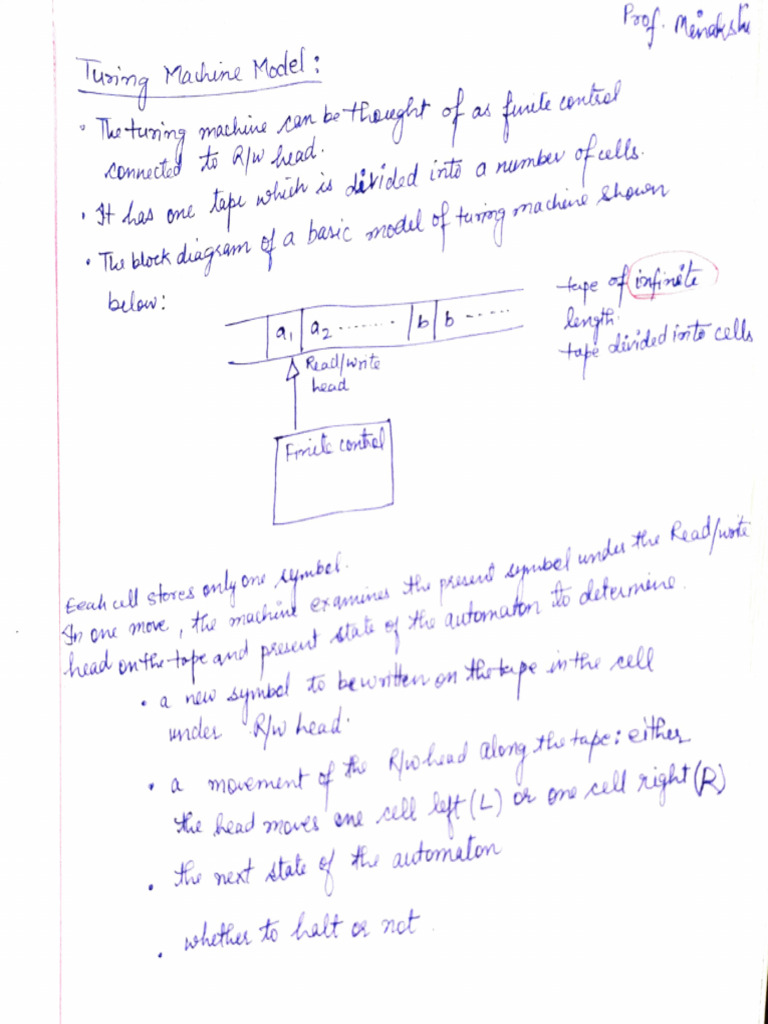 Prof. Minakshi
Turing Machine Model:
• The turing machine can be thought of as finite control
connected to R/W head.
• It has one tape which is divided into a number of cells.
• The block diagram of a basic model of turing machine shown
below:
tape of infinite
length.
tape divided into cells
a1 a2 ........ b b -----
Read/write
head
Finite control
Eeah cell stores only one symbol.
In one move, the machine examines the present symbol under the Read/write
head on the tape and present state of the automaton to determine.
• a new symbol to be written on the tape in the cell
under R/W head.
• a movement of the R/W head along the tape: either
the head moves one cell left (L) or one cell right (R)
• the next state of the automaton
• whether to halt or not.